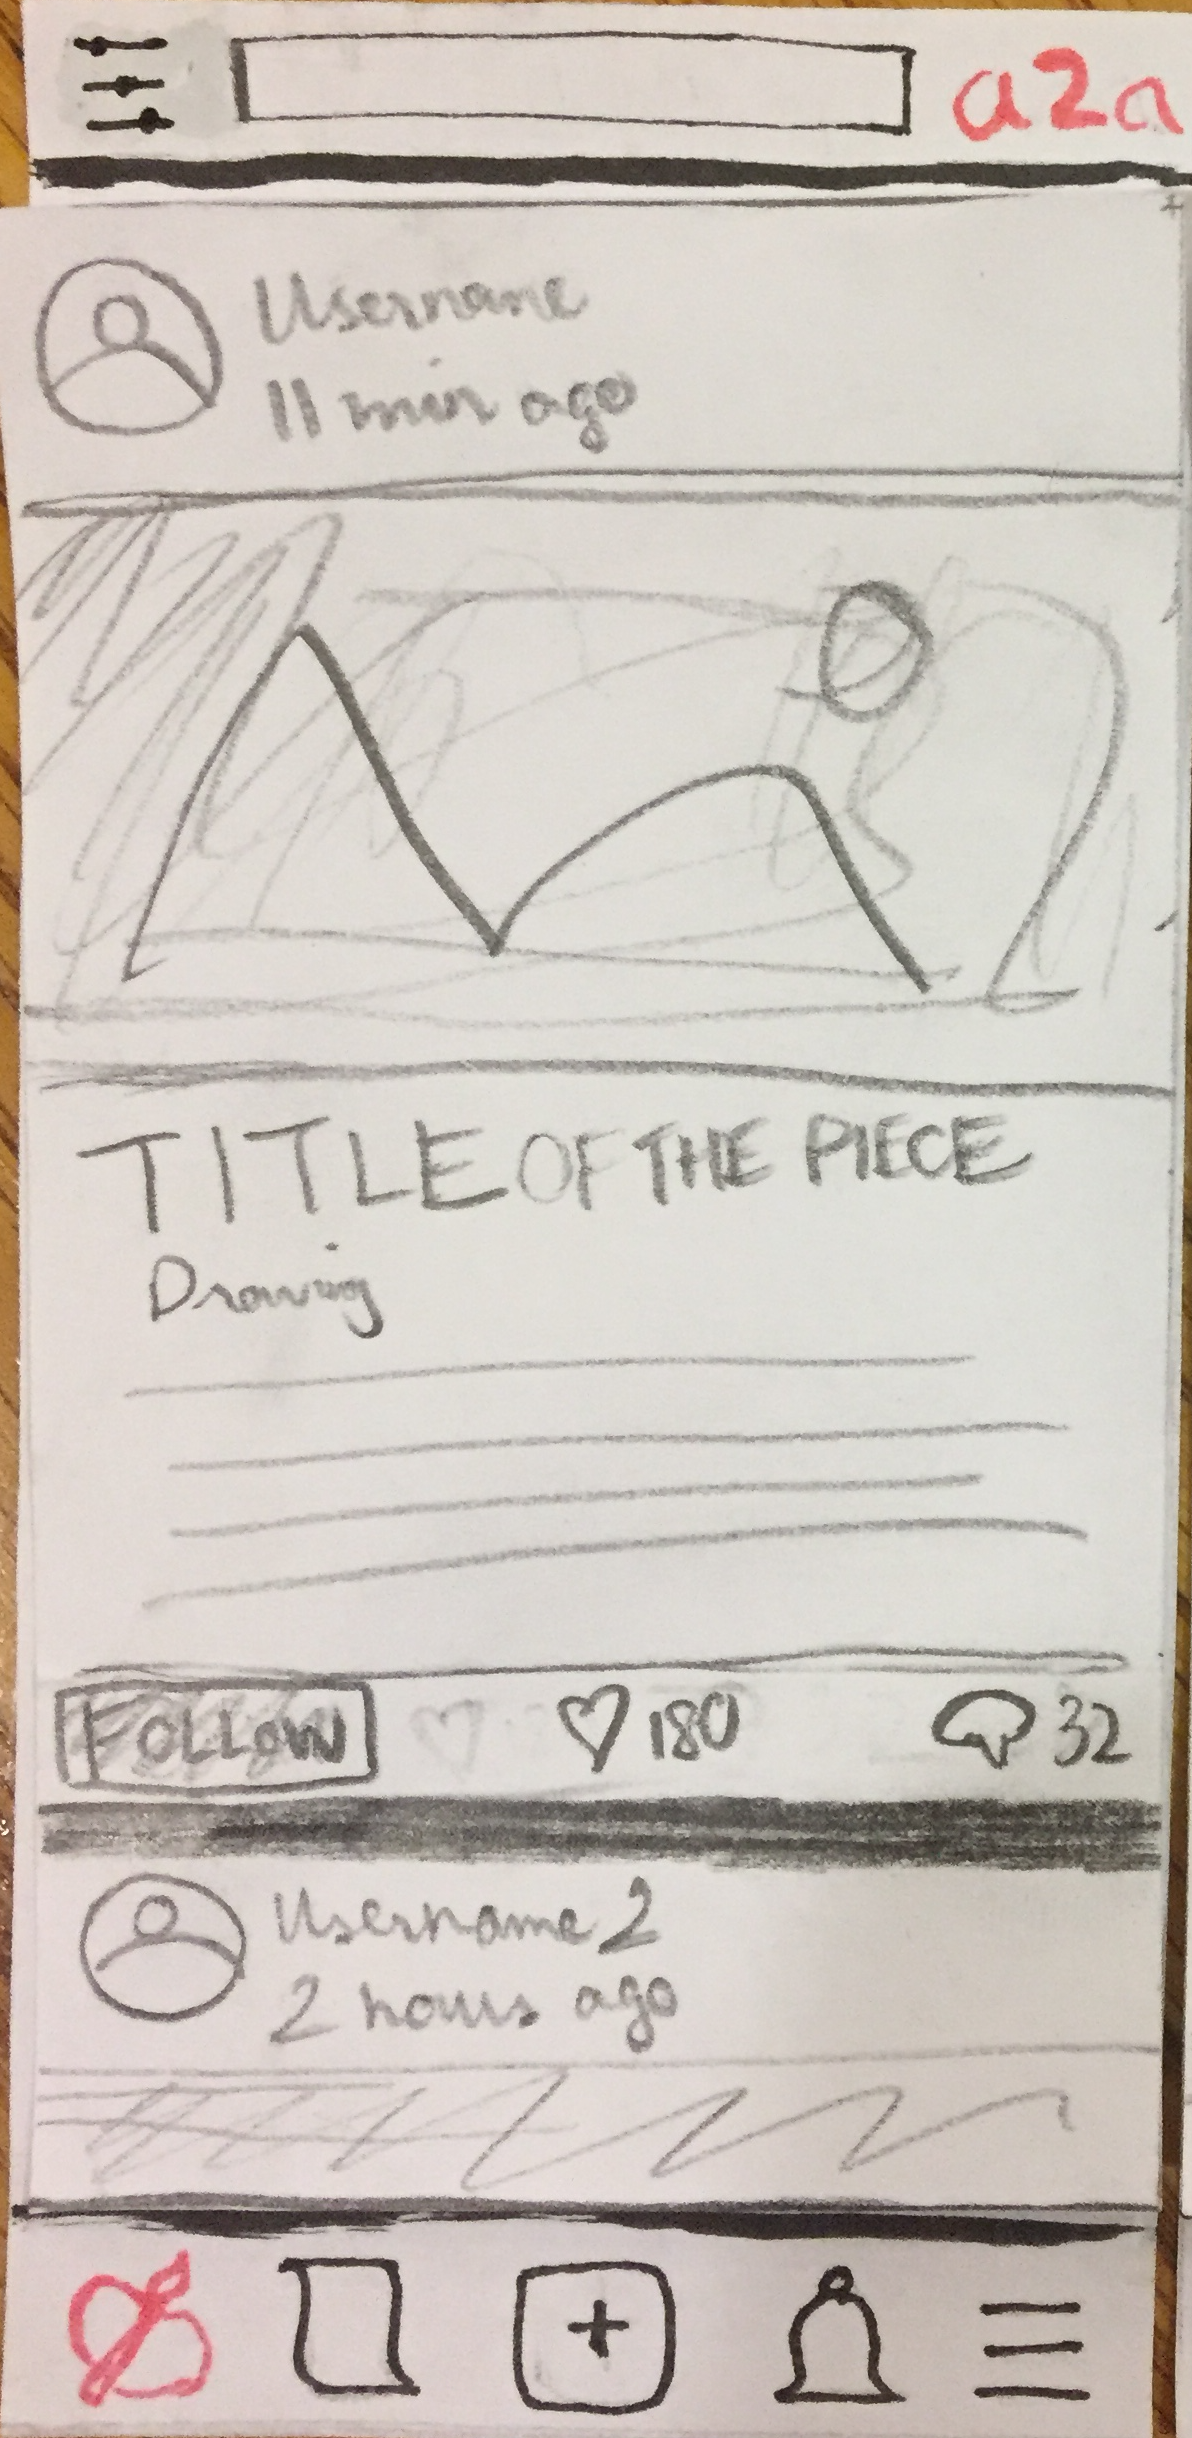 a2a
Username
11 min ago
TITLE OF THE PIECE
Drawing
FOLLOW 180 32
Username 2
2 hours ago